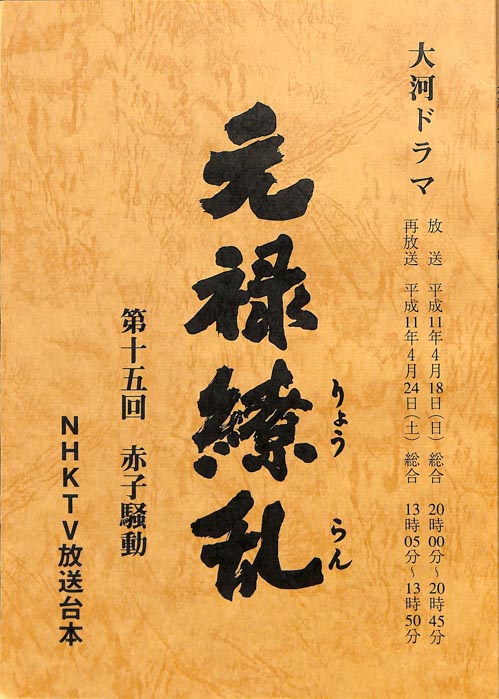 大河ドラマ
放　送　平成11年4月18日（日）総合　20時00分～20時45分
再放送　平成11年4月24日（土）総合　13時05分～13時50分
元禄繚乱
りょう　らん
第十五回　赤子騒動
NHKTV放送台本